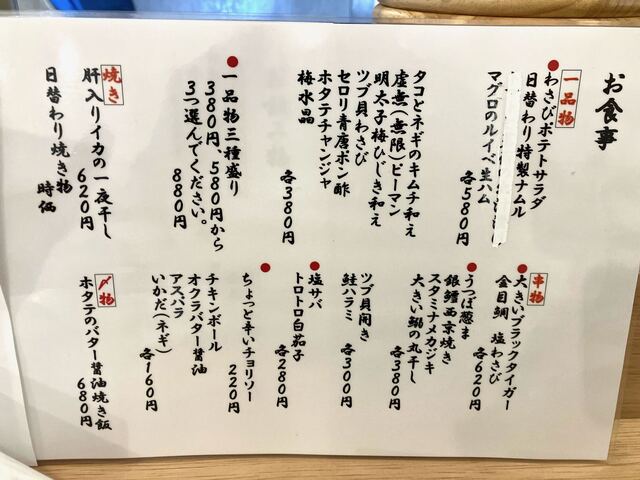 お食事
一品物
わさびポテトサラダ
日替わり特製ナムル
マグロのルイベ生ハム
各580円
タコとネギのキムチ和え
虚無(無限)ピーマン
明太子梅ひじき和え
ツブ貝わさび
セロリ青唐ポン酢
ホタテチャンジャ
梅水晶
各380円
一品物三種盛り
380円、580円から
3つ選んでください。
880円
焼き
肝入りイカの一夜干し
620円
日替わり焼き物
時価
串物
大きいブラックタイガー
金目鯛 塩わさび
各620円
うつぼ葱ま
銀鱈西京焼き
スタミナメカジキ
大きい鰯の丸干し
各380円
ツブ貝開き
鮭ハラミ
各300円
塩サバ
トロトロ白茄子
各280円
ちょっと辛いチョリソー
220円
チキンボール
オクラバター醤油
アスパラ
いかだ(ネギ)
各160円
〆物
ホタテのバター醤油焼き飯
680円